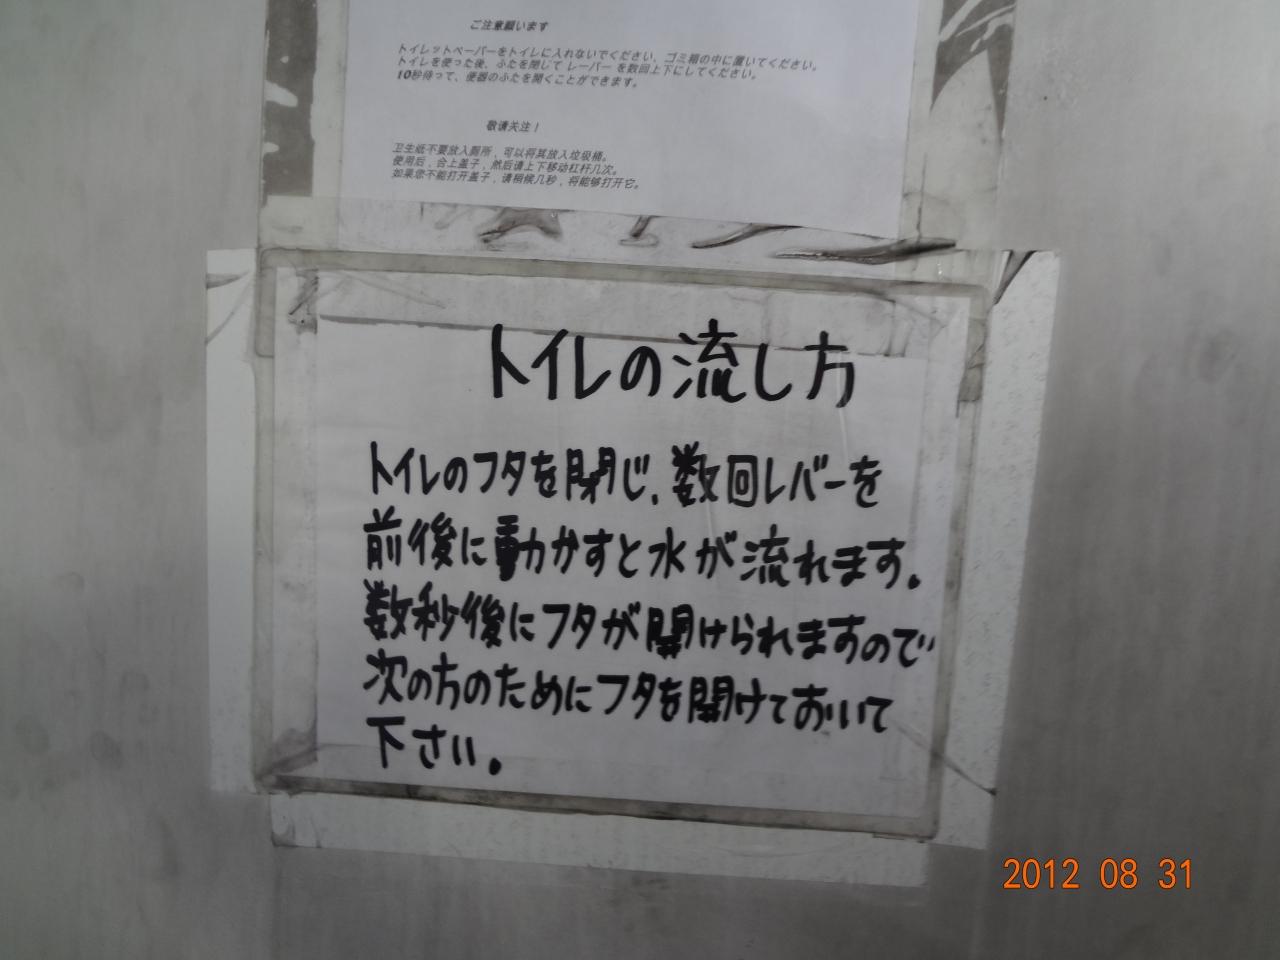 ご注意願います
トイレットペーパーをトイレに入れないでください、ゴミ箱の中に置いてください。
トイレを使った後、ふたを閉じて レーバー を数回上下にしてください。
10秒待って、便器のふたを開くことができます。
敬请关注！
卫生纸不要放入厕所，可以将其放入垃圾桶。
使用后，合上盖子，然后请上下移动杠杆几次。
如果您不能打开盖子，请稍候几秒，将能够打开它。
トイレの流し方
トイレのフタを閉じ、数回レバーを
前後に動かすと水が流れます。
数秒後にフタが開けられますので
次の方のためにフタを開けておいて
下さい。
2012 08 31